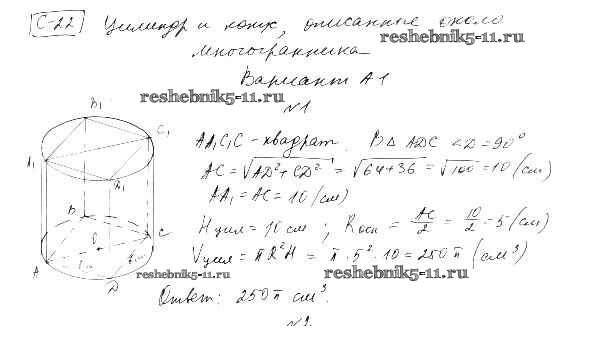 С-22 Цилиндр и конус, описанные около
многогранника
reshebnik5-11.ru
Вариант А1
reshebnik5-11.ru
№1
AA₁C₁C - квадрат. В△ ADC ∠D = 90°
AC = √AD² + CD² = √64 + 36 = √100 = 10 (см)
AA₁ = AC = 10 (см)
H цил = 10 см ; R осн = AC/2 = 10/2 = 5 (см)
V цил = πR²H = π · 5² · 10 = 250π (см³)
reshebnik5-11.ru
reshebnik5-11.ru
Ответ: 250π см³.
B₁
C₁
A₁
D₁
B
C
A
D